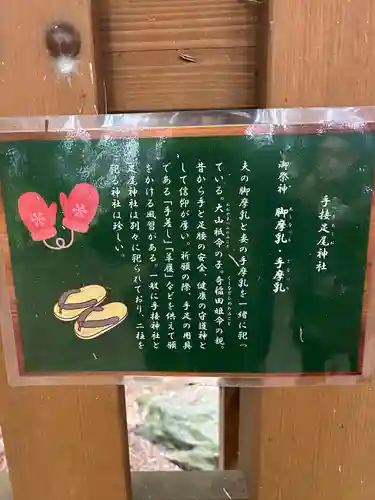 手接足尾神社
御祭神 脚摩乳 手摩乳
夫の脚摩乳と妻の手摩乳を一緒に祀っ
ている。大山祇命の子。奇稲田姫命の親。
昔から手と足腰の安全、健康の守護神と
して信仰が厚い。祈願の際、手足の用具
である「手差し」「草履」などを供えて願
をかける風習がある。一般に手接神社と
足尾神社は別々に祀られており、二柱を
祀る神社は珍しい。